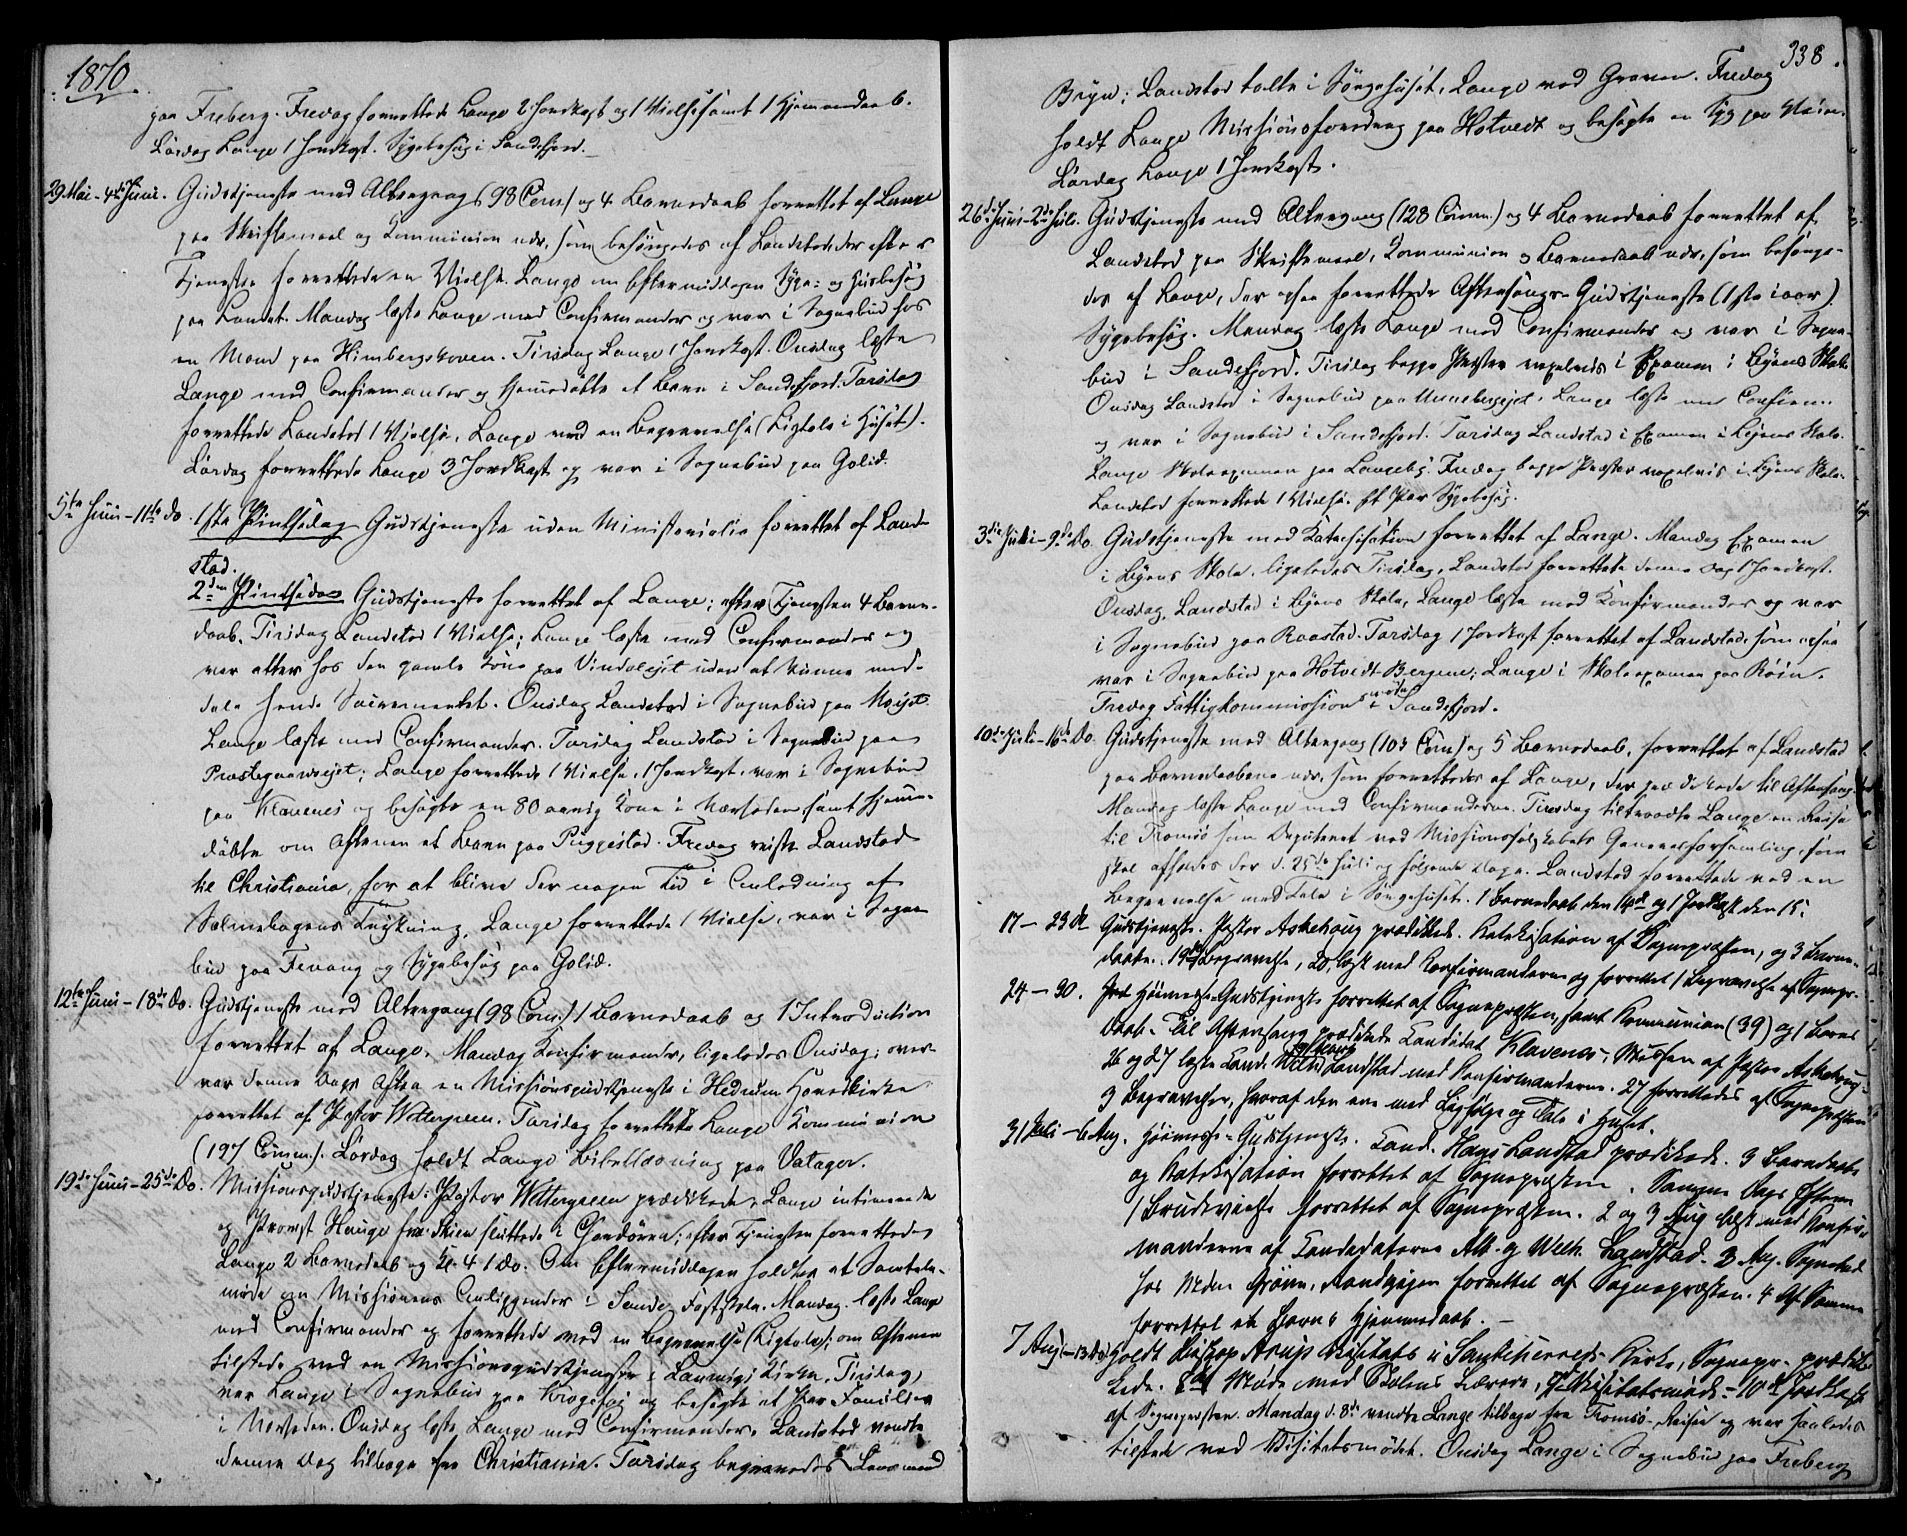 1870
paa Freberg. Fredag forrettede Lange 2 Jordkast og 1 Vielse samt 1 Hjemmedaab.
Lørdag Lange 1 Jordkast. Sygebesøg i Sandefjord.
29 Mai - 4de Juni. Gudstjeneste med Altergang (98 Com.) og 4 Barnedaab forrettet af Lange
paa Skriftemaal og Kommunion nær, som besørgedes af Landstad, der efter
Tjenesten forrettede en Vielse. Lange om Eftermiddagen Syge- og Husbesøg
paa Landet. Mandag læste Lange med Confirmander og var i Sognebud hos
en Mand paa Himbergskoven. Tirsdag Lange 1 Jordkast. Onsdag læste
Lange med Confirmander og hjemmedøbte et Barn i Sandefjord. Torsdag
forrettede Landstad 1 Vielse, Lange ved en Begravelse (Ligtale i Huset).
Lørdag forrettede Lange 3 Jordkast og var i Sognebud paa Golid.
5te Juni - 11te Do. 1ste Pintsedag Gudstjeneste uden Ministerialia forrettet af Land-
stad.
2den Pintsedag Gudstjeneste forrettet af Lange; efter Tjenesten 4 Barne-
daab. Tirsdag Landstad 1 Vielse; Lange læste med Confirmander og
var atter hos den gamle Kone paa Vindalejet uden at kunne med-
dele hende Sacramentet. Onsdag Landstad i Sognebud paa
Lange læste med Confirmander. Torsdag Landstad i Sognebud paa
Præstegaardsejet; Lange forrettede 1 Vielse, 1 Jordkast, var i Sognebud
paa Klavenes og besøgte en 80 aarig Kone i Nærheden samt hjemme-
døbte om Aftenen et Barn paa Puggestad. Fredag reiste Landstad
til Christiania, for at blive der nogen Tid i Anledning af
Salmebogens Trykning, Lange forrettede 1 Vielse, var i Sogne-
bud paa Fevang og Sygebesøg paa Golid.
12te Juni - 18de Do. Gudstjeneste med Altergang (98 Com.) 1 Barnedaab og 1 Introduction
forrettet af Lange. Mandag Konfirmander, ligeledes Onsdag; over-
var denne Dags Aften en Missionsgudstjeneste i Hedrum Hovedkirke
forrettet af Pastor Wettergreen. Torsdag forrettede Lange Kommunion
(127 Comm.). Lørdag holdt Lange Bibellæsning paa Vatager.
19de Juni - 25de Do. Missionsgudstjeneste: Pastor Wettergreen prædikede, Lange intimerede
og Provst Hauge fra Skien sluttede i Chordøren; efter Tjenesten forrettede
Lange 2 Barnedaab og Kl. 4 1 Do. Om Eftermiddagen holdtes et Samtale-
møde om Missionens Anliggender i Sande Fastskole. Mandag læste Lange
med Confirmander og forrettede ved en Begravelse (Ligtale); om Aftenen
tilstede ved en Missionsgudstjeneste i Laurvigs Kirke. Tirsdag
var Lange i Sognebud paa Krogshøj og besøgte et Par Familier
i Nærheden. Onsdag læste Lange med Confirmander. Landstad vendte
denne Dag tilbage fra Christiania. Torsdag begravedes
338.
Bryn; Landstad talte i Sørgehuset, Lange ved Graven. Fredag
holdt Lange Missionsforedrag paa Hotvedt og besøgte en Syg paa
Lørdag Lange 1 Jordkast.
26de Juni - 2den Juli. Gudstjeneste med Altergang (128 Comm.) og 4 Barnedaab forrettet af
Landstad paa Skriftemaal, Kommunion og Barnedaab nær, som besørge-
des af Lange, der ogsaa forrettede Aftensangs-Gudstjeneste (1ste i aar).
Sygebesøg. Mandag læste Lange med Confirmander og var i Sogne-
bud i Sandefjord. Tirsdag begge Præster vexelvis i Examen i Byens Skole.
Onsdag Landstad i Sognebud paa Unnebergejet. Lange læste med Confirm.
og var i Sognebud i Sandefjord. Torsdag Landstad i Examen i Byens Skole.
Lange Skoleexamen paa Langeby. Fredag begge Præster vexelvis i Byens Skole.
Landstad forrettede 1 Vielse. Et Par Sygebesøg.
3die Juli - 9de Do. Gudstjeneste med Katechisation forrettet af Lange. Mandag Examen
i Byens Skole, ligeledes Tirsdag, Landstad forrettede denne Dag 1 Jordkast.
Onsdag, Landstad i Byens Skole, Lange læste med Konfirmander og var
i Sognebud paa Raastad. Torsdag 1 Jordkast forrettet af Landstad, som ogsaa
var i Sognebud paa Hotvedt-Bergene; Lange i Skoleexamen paa Røin.
Fredag Fattigkommissionsmøde i Sandefjord.
10de Juli - 16de Do. Gudstjeneste med Altergang (103 Com.) og 5 Barnedaab, forrettet af Landstad
paa Barnedaabene nær, som forrettedes af Lange, der prædikede til Aftensang.
Mandag læste Lange med Confirmanderne. Tirsdag tiltraadte Lange en Reise
til Tromsø som Deputeret ved Missionsselskabets Generalforsamling, som
skal afholdes der d. 25de Juli og følgende Dage. Landstad forrettede ved en
Begravelse med Tale i Sørgehuset. 1 Barnedaab den 14de og 1 Jordkast den 15.
17 - 23 de Gudstjeneste. Pastor Askehoug prædikede. Katekisation af Sognepræsten, og 3 Barne-
daabe. 19de Begravelse, 20, læst med Konfirmanderne og forrettet 1 Begravelse af Sognepr.
24 - 30. Høimesse-Gudstjeneste forrettet af Sognepræsten, samt Kommunion (39) og 1 Barne-
daab. Til Aftensang prædikede Kandidat Klavenes, Messen af Pastor Askehoug.
26 og 27 læste Cand. Wilh. Landstad med Konfirmanderne. 27 forrettedes af Sognepræsten
3 Begravelser, hvoraf den ene med Ligfølge og Tale i Huset.
31 Juli - 6 Aug. Høimesse-Gudstjeneste. Cand. Hans Landstad prædikede. 3 Barnedaabe
og Katekisation forrettet af Sognepræsten. Samme Dags Aften
1 Brudevielse forrettet af Sognepræsten. 2 og 3 Aug. læst med Konfir-
manderne af Candidaterne Alb. og Wilh. Landstad. 3 Aug. Sognebud
hos forrettet af Sognepræsten. 4 af Samme
forrettet et Barns Hjemmedaab. -
7 Aug. - 13 Do. Holdt Biskop Arup Visitats i Sandeherreds Kirke, Sognepr. prædi-
kede. 8de Møde med Skolens Lærere, Visitatsmøde. - 10de Jordkast
af Sognepræsten. Mandag d. 8de vendte Lange tilbage fra Tromsø-Reisen og var saaledes
tilstede ved Visitatsmødet. Onsdag Lange i Sognebud paa Freberg